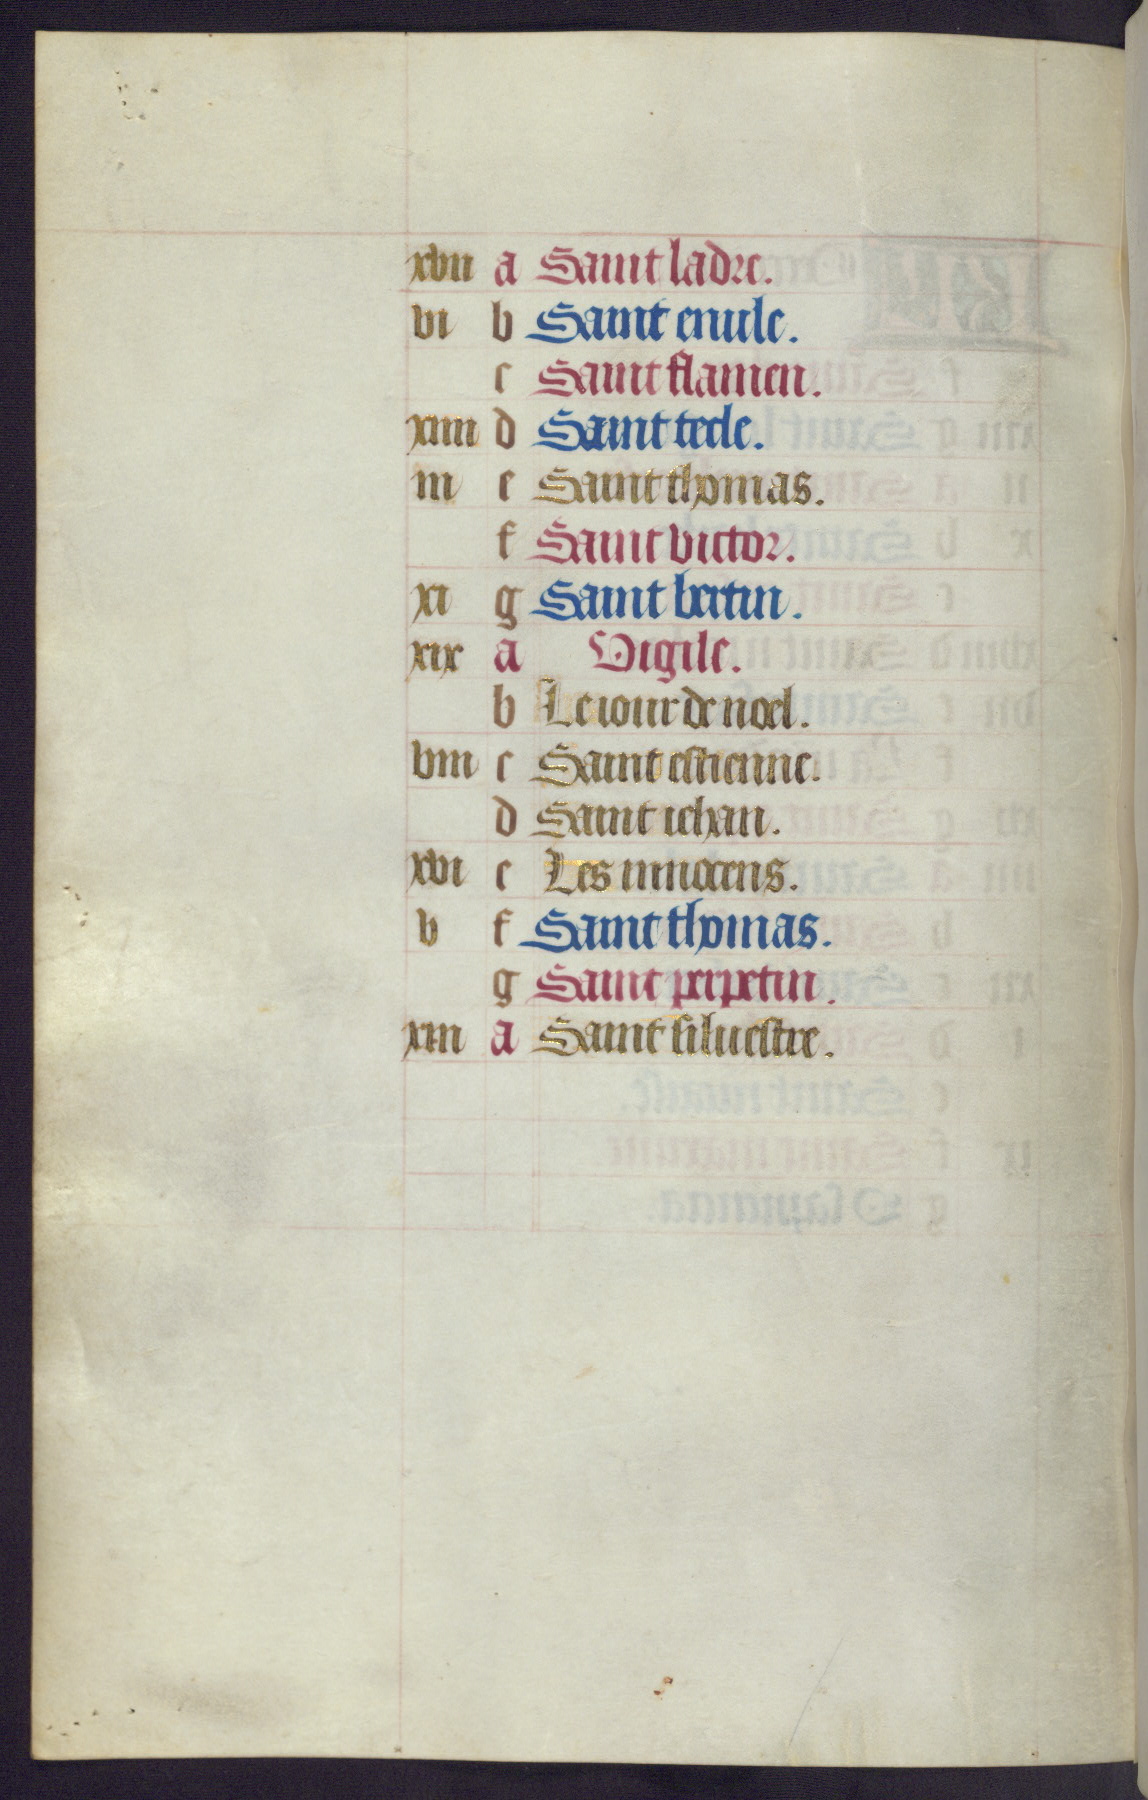 xvii a Saint ladre.
vi b Saint emile.
c Saint flamen.
xiiii d Saint tecle.
iii e Saint thomas.
f Saint victor.
xi g Saint bertin.
xix a Vigile.
b Le iour de noel.
viii c Saint estienne.
d Saint iehan.
xvi e Les innocens.
v f Saint thomas.
g Saint perpetin.
xiii a Saint silvestre.